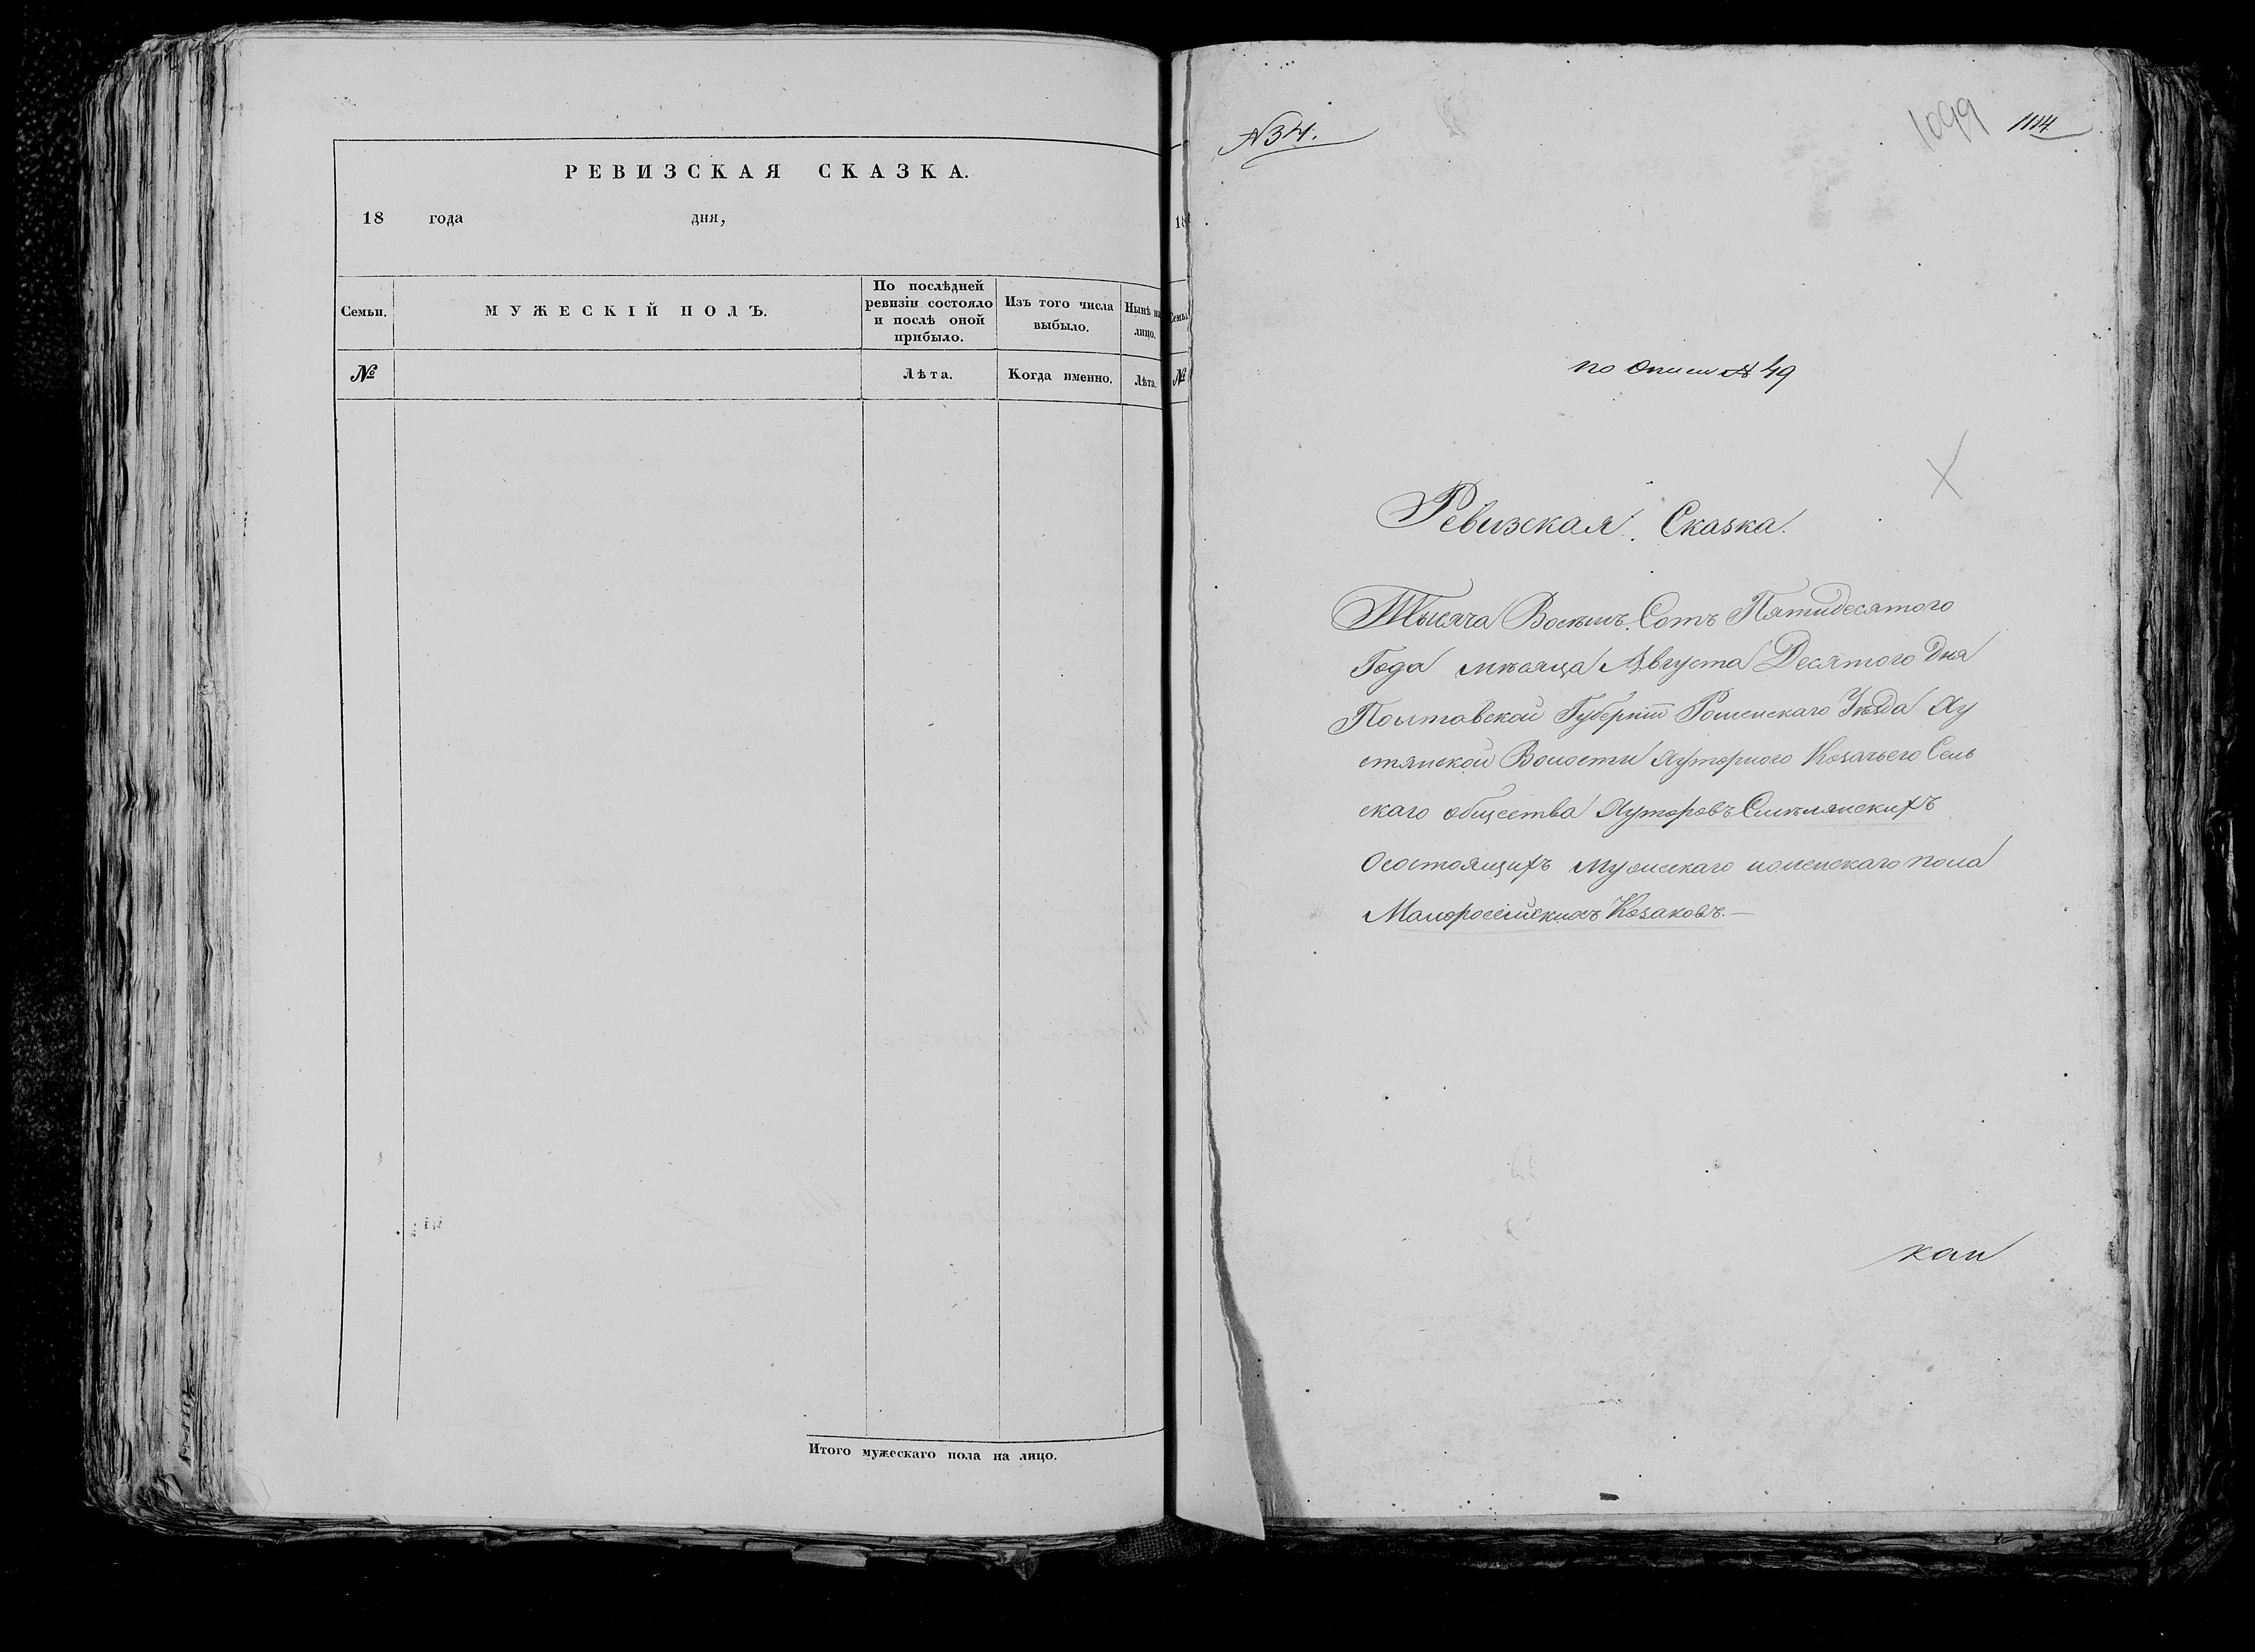 РЕВИЗСКАЯ СКАЗКА.
18 года дня,
Семьи.
МУЖЕСКІЙ ПОЛЪ.
По послѣдней ревизіи состояло и послѣ оной прибыло.
Изъ того числа выбыло.
Нынѣ на лицо.
№
Лѣта.
Когда именно.
Лѣта.
Итого мужескаго пола на лицо.
18
Семьи
№
1099
1114
по описи № 49
Ревизская Сказка.
Тысяча Восемь Сотъ Пятидесятого
Года мѣсяца Августа Десятого дня
Полтавской Губерніи Роменскаго Уѣзда Ху
стянской Волости Хуторного Козачьего Сель
скаго общества Хуторовъ Смѣлянскихъ
О состоящихъ мужескаго и женскаго пола
Малороссійскихъ Козаковъ.—